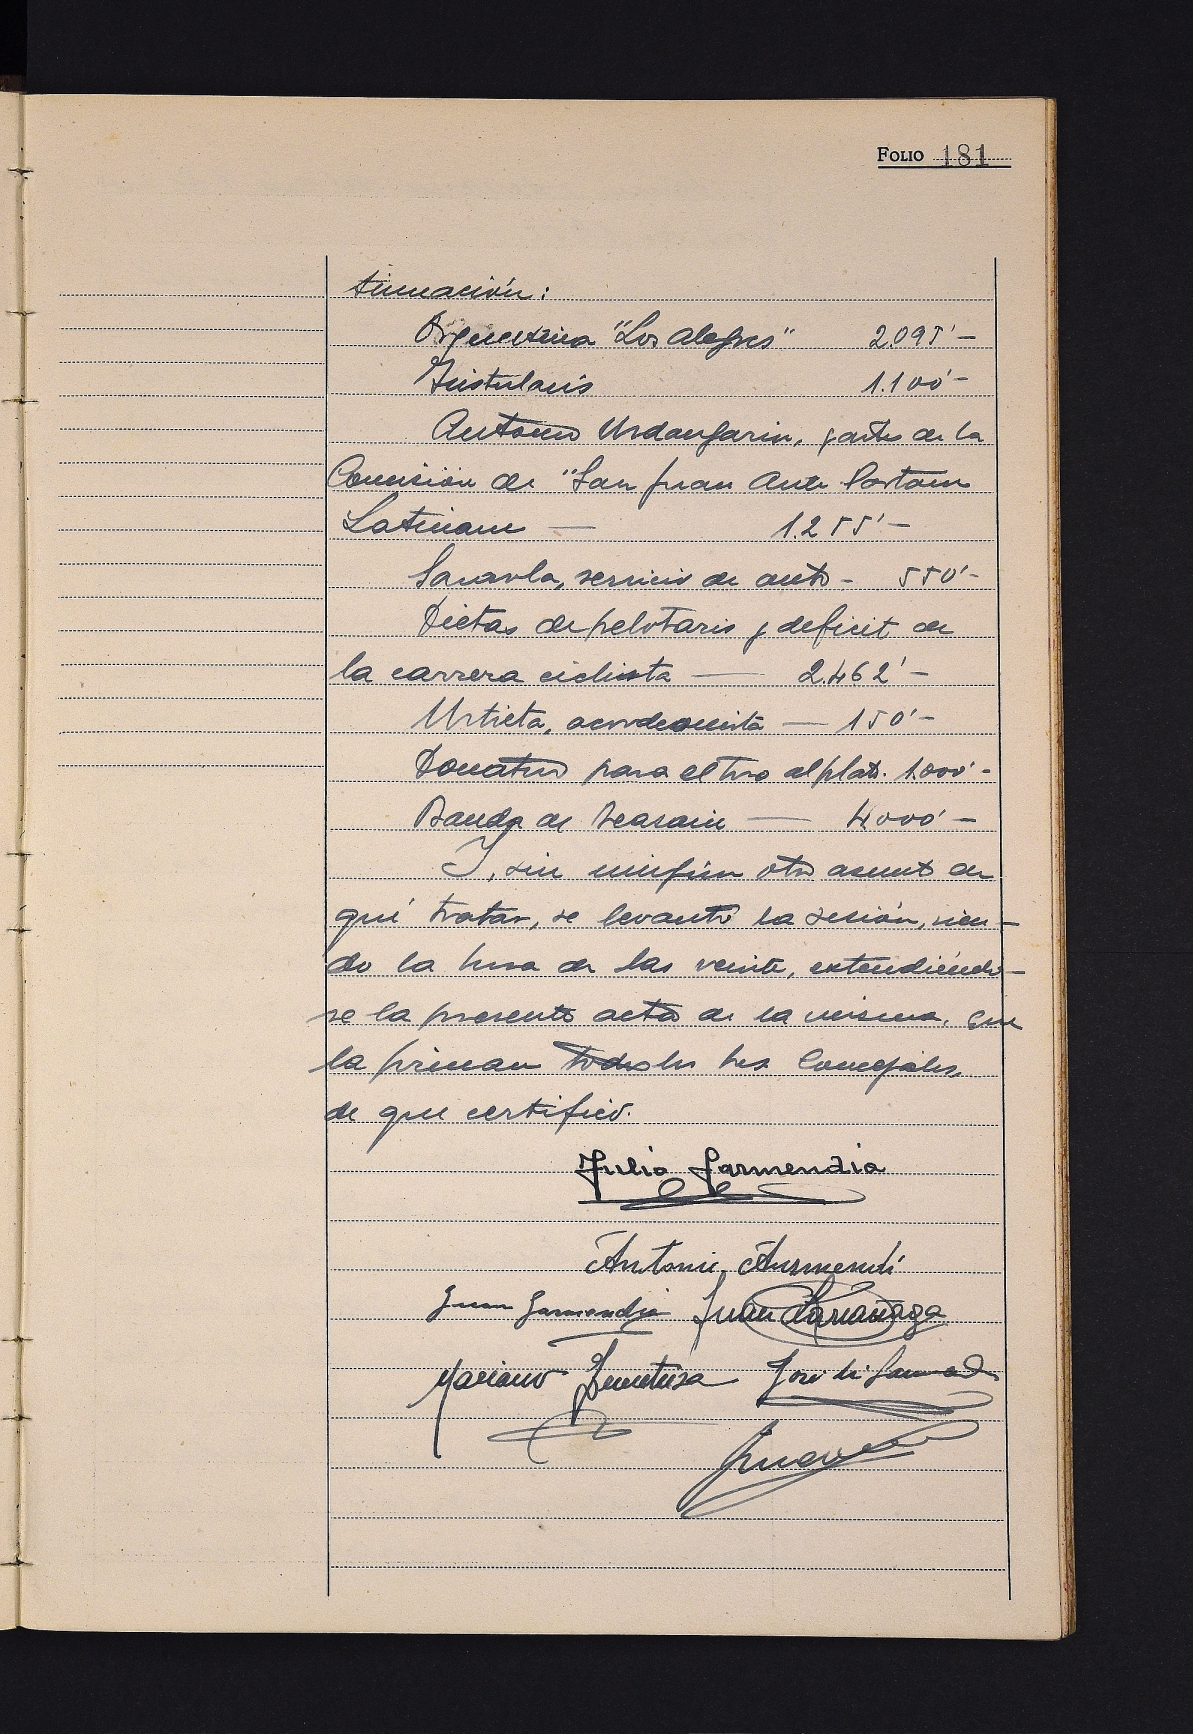 FOLIO 181
tinuación:
Orquestina "Los Alegres" 2.095'-
Txistularis 1.100'-
Antonio Urdangarin, gastos de la
Comisión de "San Juan Ante Portam
Latinam — 1.255'-
Sarasola, servicio de auto - 550'-
Dietas de pelotaris y deficit de
la carrera ciclista — 2.462'-
Urtieta, acordeonista — 150'-
Donativo para el tiro al plato. 1.000'-
Banda de Beasain — 4.000'-
Y, sin ningún otro asunto de
qué tratar, se levantó la sesión, sien-
do la hora de las veinte, extendiéndo-
se la presente acta de la misma, que
la firman todos los Sres. Concejales,
de que certifico.
Julio Garmendia
Antonio Aurmendi
Juan Garmendia Juan Larrañaga
Mariano José